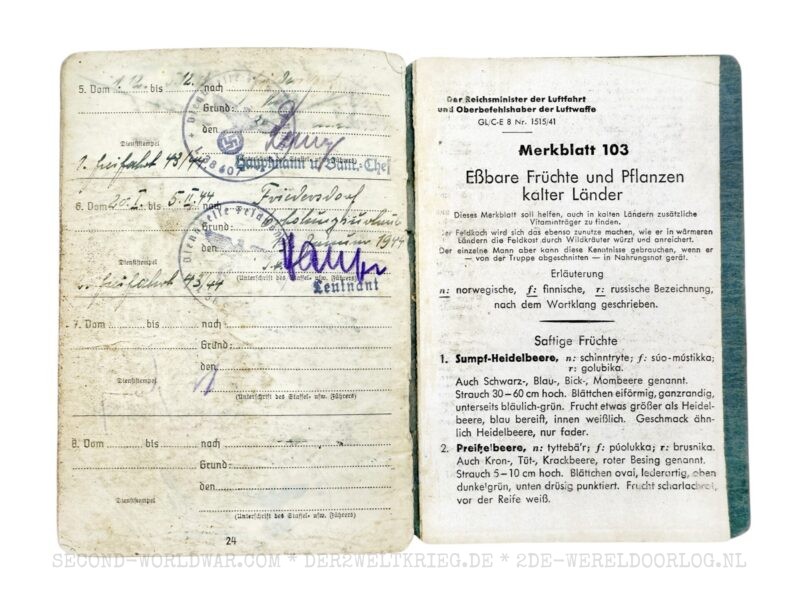 5. Vom 1.12. bis 12. nach
Grund:
den
Dienststempel
1. Freifahrt 43/44 Hauptmann u. Battr.-Chef
L 38607
6. Vom 20.I. bis 5.II.44 nach Friedersdorf
Grund: Erholungsurlaub
Dienststelle Feldpost
den Januar 1944
Dienststempel
(Unterschrift des Staffel- usw. Führers)
Freifahrt 43/44 Leutnant
7. Vom bis nach
Grund:
den
Dienststempel
(Unterschrift des Staffel- usw. Führers)
8. Vom bis nach
Grund:
den
Dienststempel
(Unterschrift des Staffel- usw. Führers)
24
Der Reichsminister der Luftfahrt
und Oberbefehlshaber der Luftwaffe
GL/C-E 8 Nr. 1515/41
Merkblatt 103
Eßbare Früchte und Pflanzen
kalter Länder
Dieses Merkblatt soll helfen, auch in kalten Ländern zusätzliche
Vitaminträger zu finden.
Der Feldkoch wird sich das ebenso zunutze machen, wie er in wärmeren
Ländern die Feldkost durch Wildkräuter würzt und anreichert.
Der einzelne Mann aber kann diese Kenntnisse gebrauchen, wenn er
— von der Truppe abgeschnitten — in Nahrungsnot gerät.
Erläuterung
n: norwegische, f: finnische, r: russische Bezeichnung,
nach dem Wortklang geschrieben.
Saftige Früchte
1. Sumpf-Heidelbeere, n: schinntryte; f: súo-mústikka;
r: golubika.
Auch Schwarz-, Blau-, Bick-, Mombeere genannt.
Strauch 30–60 cm hoch. Blättchen eiförmig, ganzrandig,
unterseits bläulich-grün. Frucht etwas größer als Heidel-
beere, blau bereift, innen weißlich. Geschmack ähn-
lich Heidelbeere, nur fader.
2. Preißelbeere, n: tyttebä'r; f: púolukka; r: brusnika.
Auch Kron-, Tüt-, Krackbeere, roter Besing genannt.
Strauch 5–10 cm hoch. Blättchen oval, lederartig, oben
dunkelgrün, unten drüsig punktiert. Frucht scharlachrot,
vor der Reife weiß.
SECOND-WORLDWAR.COM * DER2WELTKRIEG.DE * 2DE-WERELDOORLOG.NL